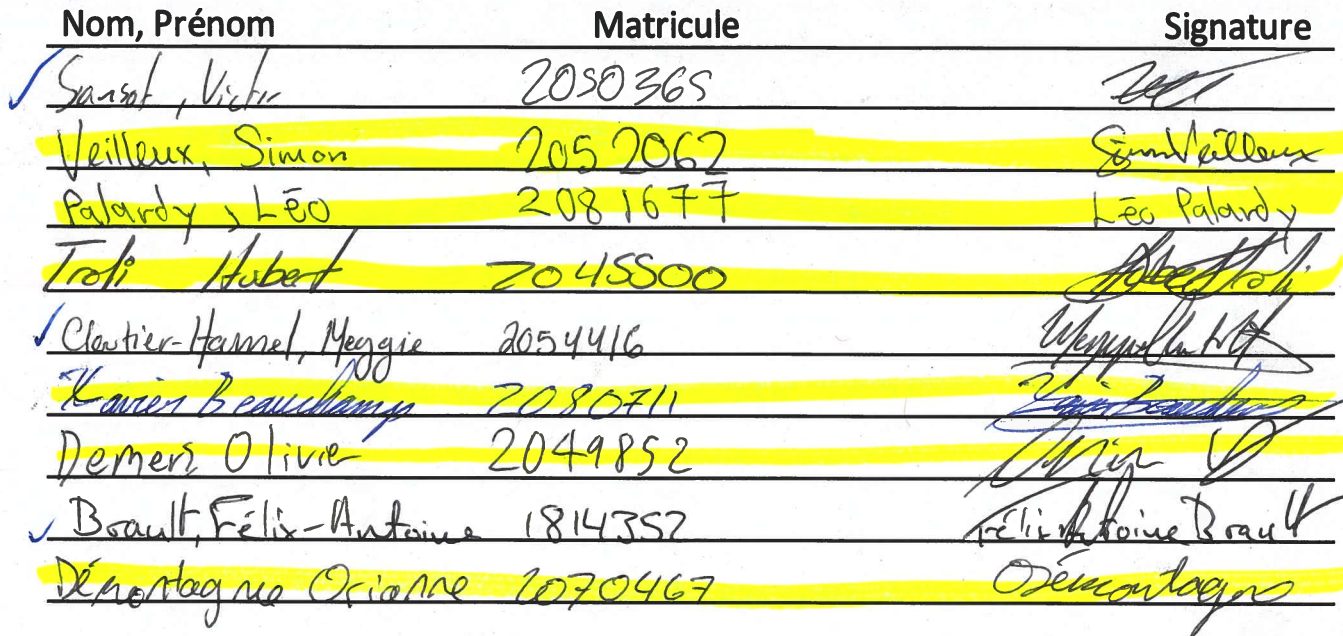 Nom, Prénom Matricule Signature
Sansot, Victor 2050365
Veilleux, Simon 2052062 Simon Veilleux
Palardy, Léo 2081677 Léo Palardy
Troli Hubert 2045500 Hubert Troli
Cloutier-Hamel, Meggie 2054416
Xavier Beauchamp 2080711 Xavier Beauchamp
Demers Olivier 2049852
Brault, Félix-Antoine 1814352 Félix-Antoine Brault
Démontagne Orianne 2070467 ODémontagne